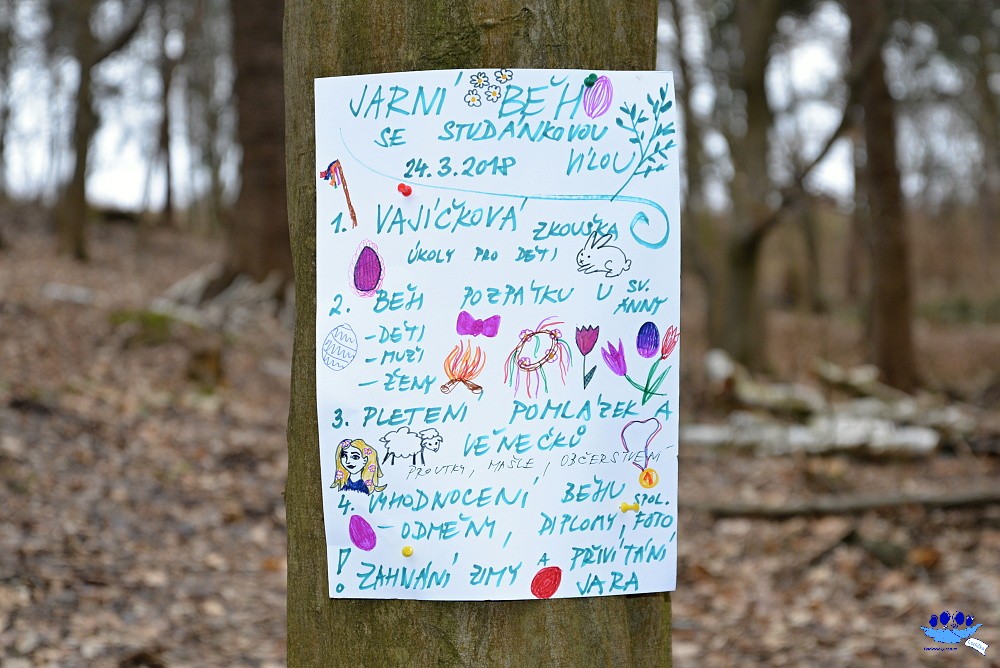 JARNÍ BĚH
SE STUDÁNKOVOU
24.3.2018 VÍLOU
1. VAJÍČKOVÁ ZKOUŠKA
ÚKOLY PRO DĚTI
2. BĚH POZPÁTKU U SV. ANNY
- DĚTI
- MUŽI
- ŽENY
3. PLETENÍ POMLÁZEK A
VĚNEČKŮ
PROUTKY, MAŠLE, OBČERSTVENÍ
4. VYHODNOCENÍ BĚHU
- ODMĚNY, DIPLOMY, SPOL. FOTO
! ZAHNÁNÍ ZIMY A PŘIVÍTÁNÍ
JARA